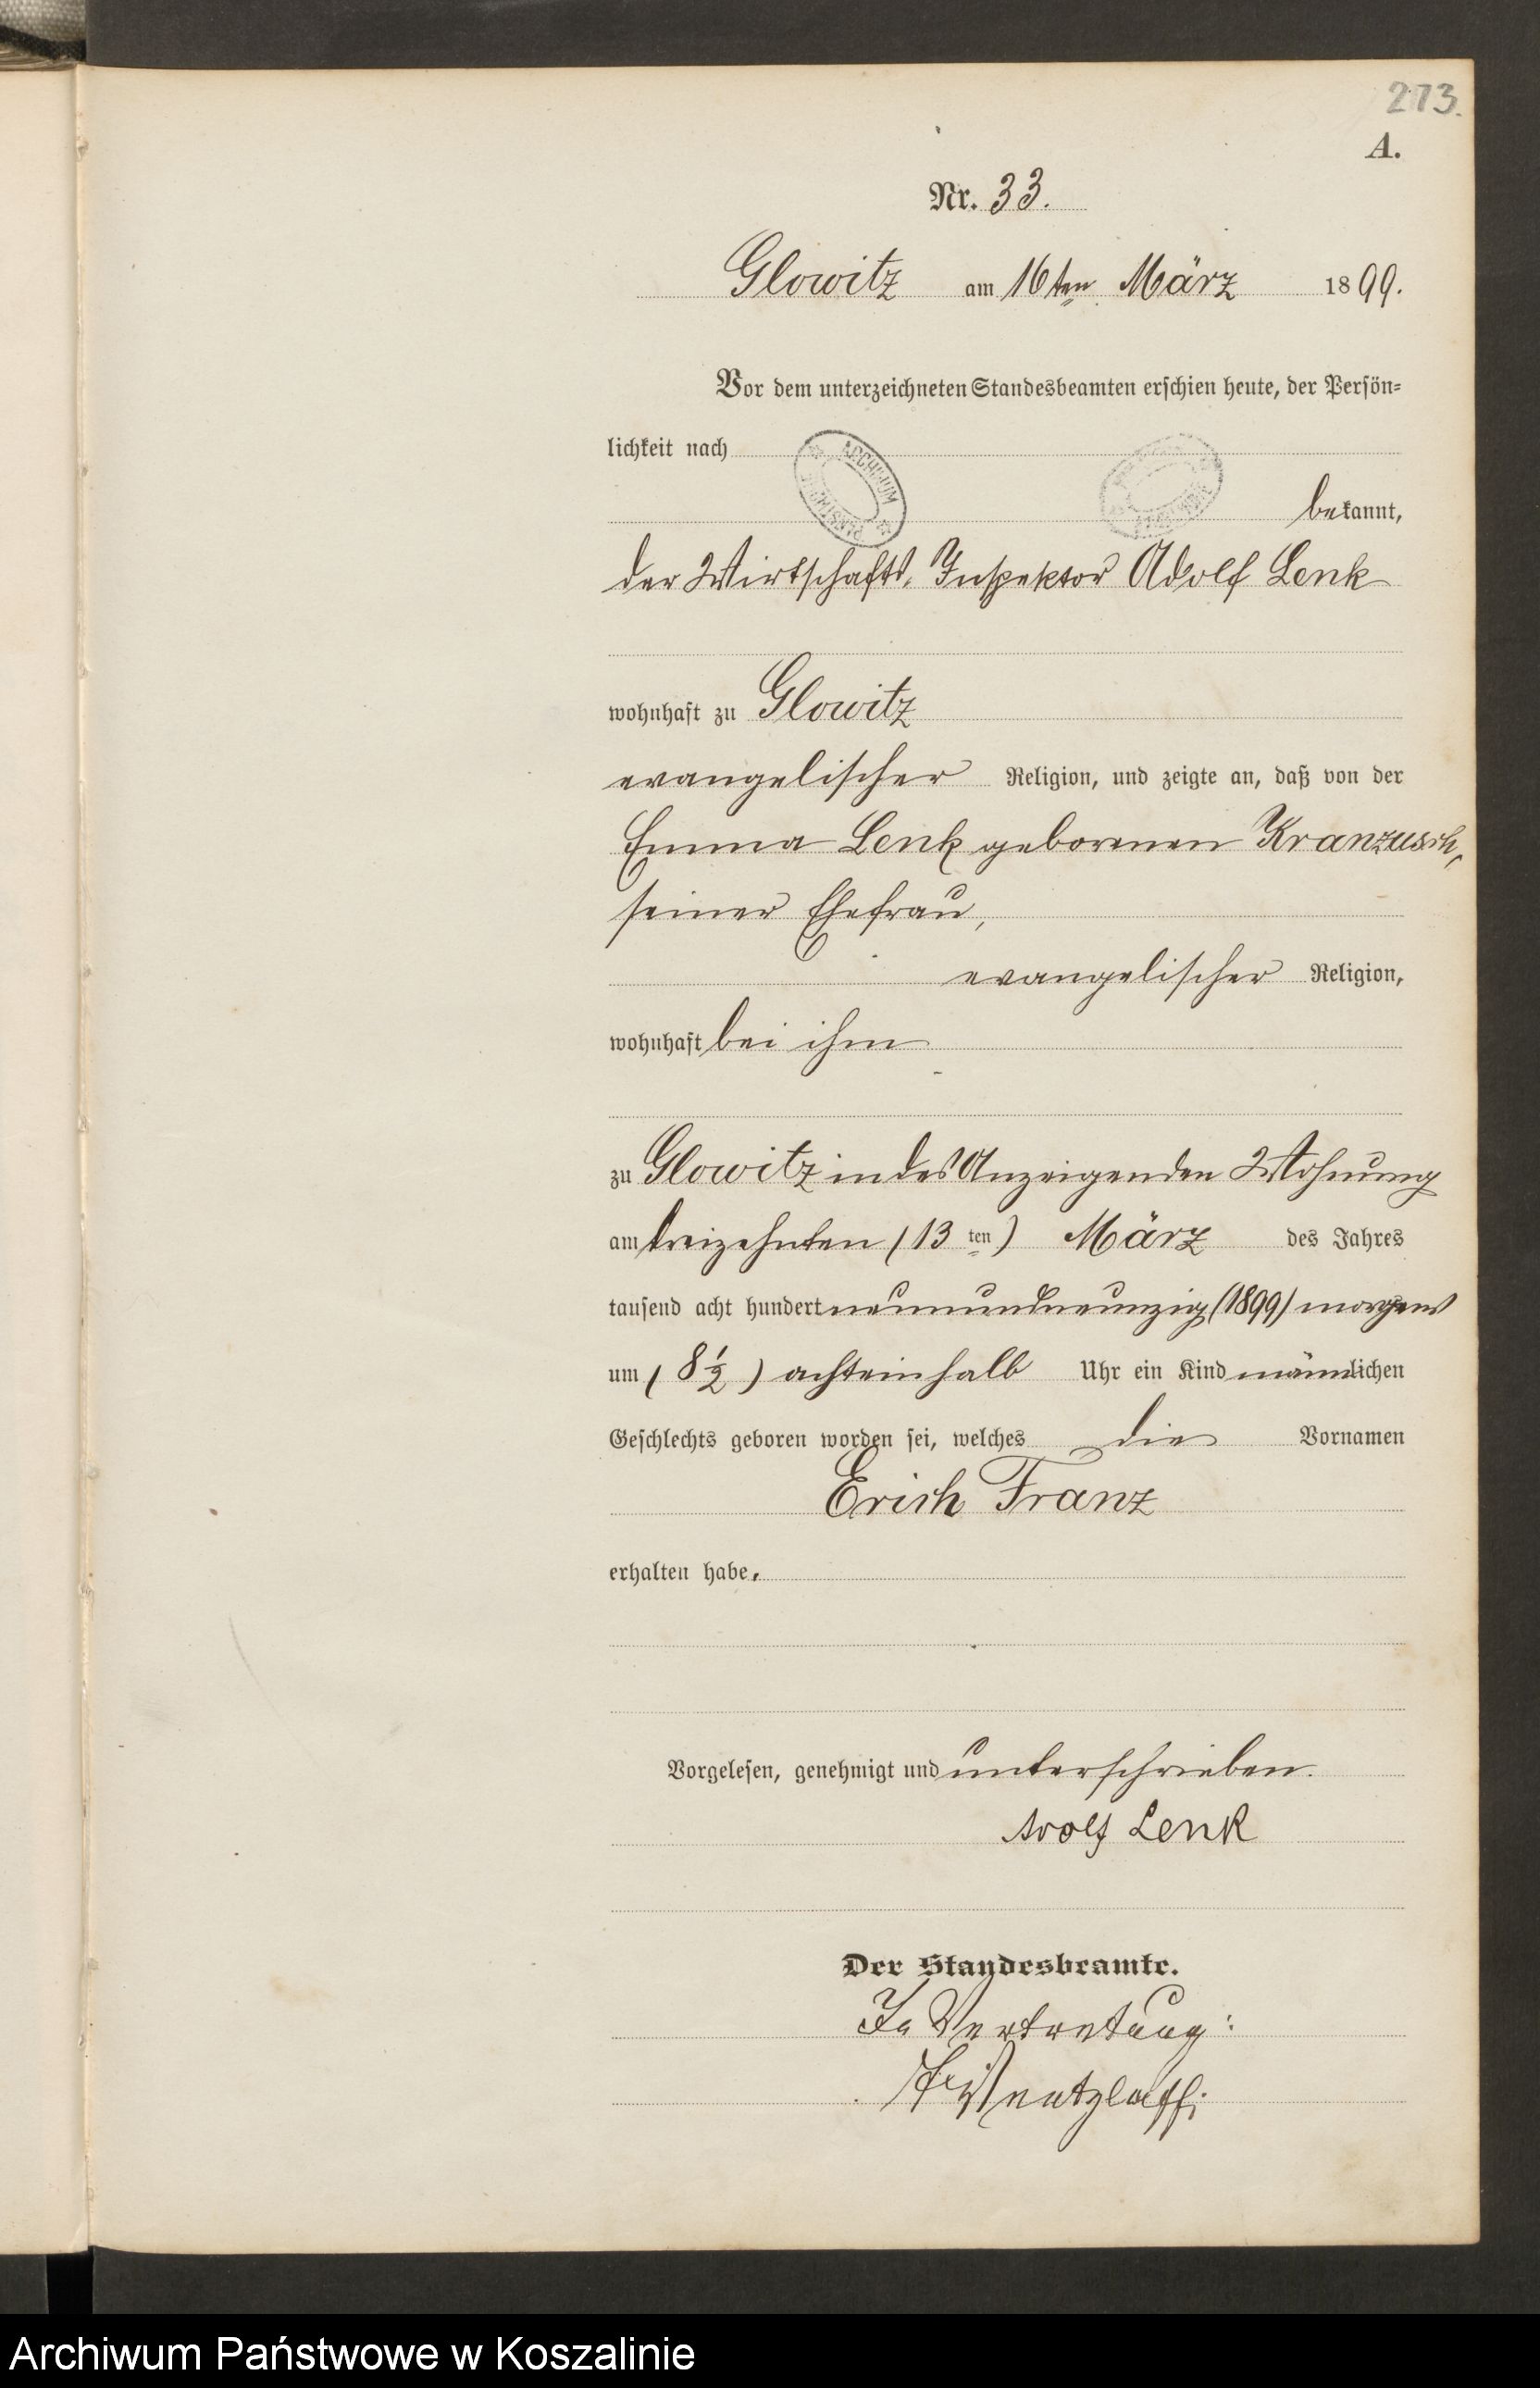 273.
A.
Nr. 33.
Glowitz am 16ten März 1899.
Vor dem unterzeichneten Standesbeamten erschien heute, der Persön=
lichkeit nach
bekannt,
der Wirtschafts-Inspektor Adolf Lenk
wohnhaft zu Glowitz
evangelischer Religion, und zeigte an, daß von der
Emma Lenk geborenen Kranzusch,
seiner Ehefrau,
evangelischer Religion,
wohnhaft bei ihm
zu Glowitz in des Anzeigenden Wohnung
am dreizehnten (13 ten) März des Jahres
tausend acht hundert neunundneunzig (1899) morgens
um (8½) achteinhalb Uhr ein Kind männlichen
Geschlechts geboren worden sei, welches die Vornamen
Erich Franz
erhalten habe.
Vorgelesen, genehmigt und unterschrieben.
Adolf Lenk
Der Standesbeamte.
In Vertretung:
Wentzlaff
Archiwum Państwowe w Koszalinie